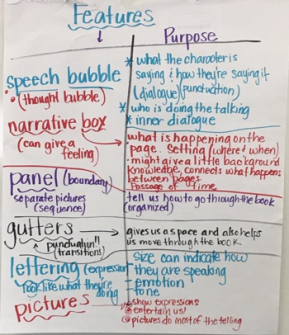 Features
Purpose
speech bubble
(thought bubble)
* what the character is
saying & how they're saying it
(dialogue) (punctuation)
* who is doing the talking
* inner dialogue
narrative box
(can give a
feeling)
what is happening on the
page. Setting (where & when)
might give a little background
knowledge, connects what happens
between pages
Passage of time
panel (boundary)
separate pictures
(sequence)
tell us how to go through the book
(organized)
gutters
punctuation!!
(transitions)
gives us a space and also helps
us move through the book
lettering (expression)
look like what they're
doing
size can indicate how
they are speaking
emotion
tone
pictures
show expressions
entertain us!
pictures do most of the telling